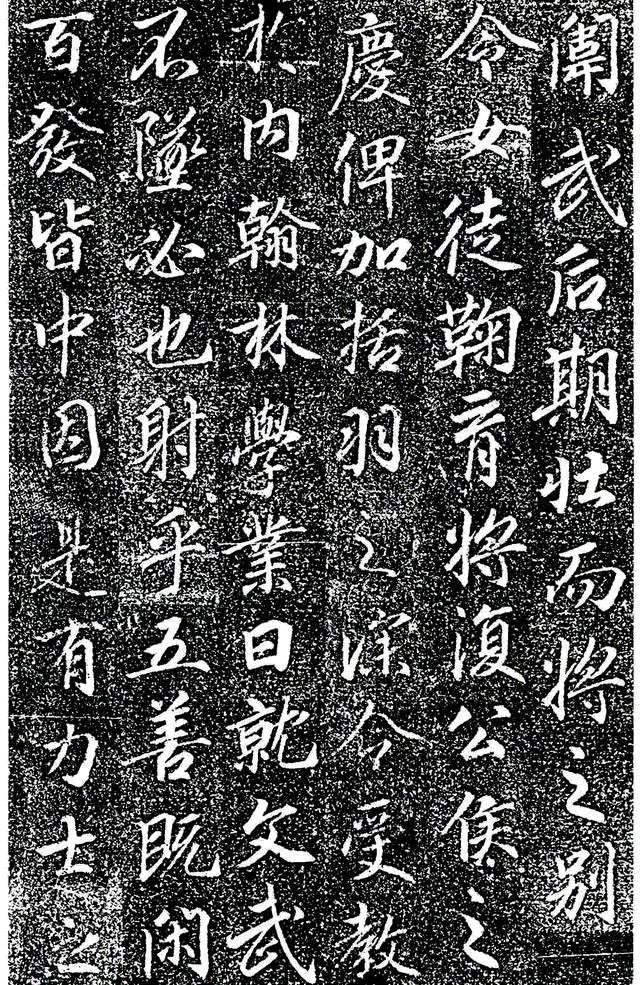 闈武后期壯而将之別
令女徒鞠育將復公侯之
慶俾加括羽之深令受教
於内翰林學業日就文武
不墜必也射乎五善既閑
百發皆中因是有力士之